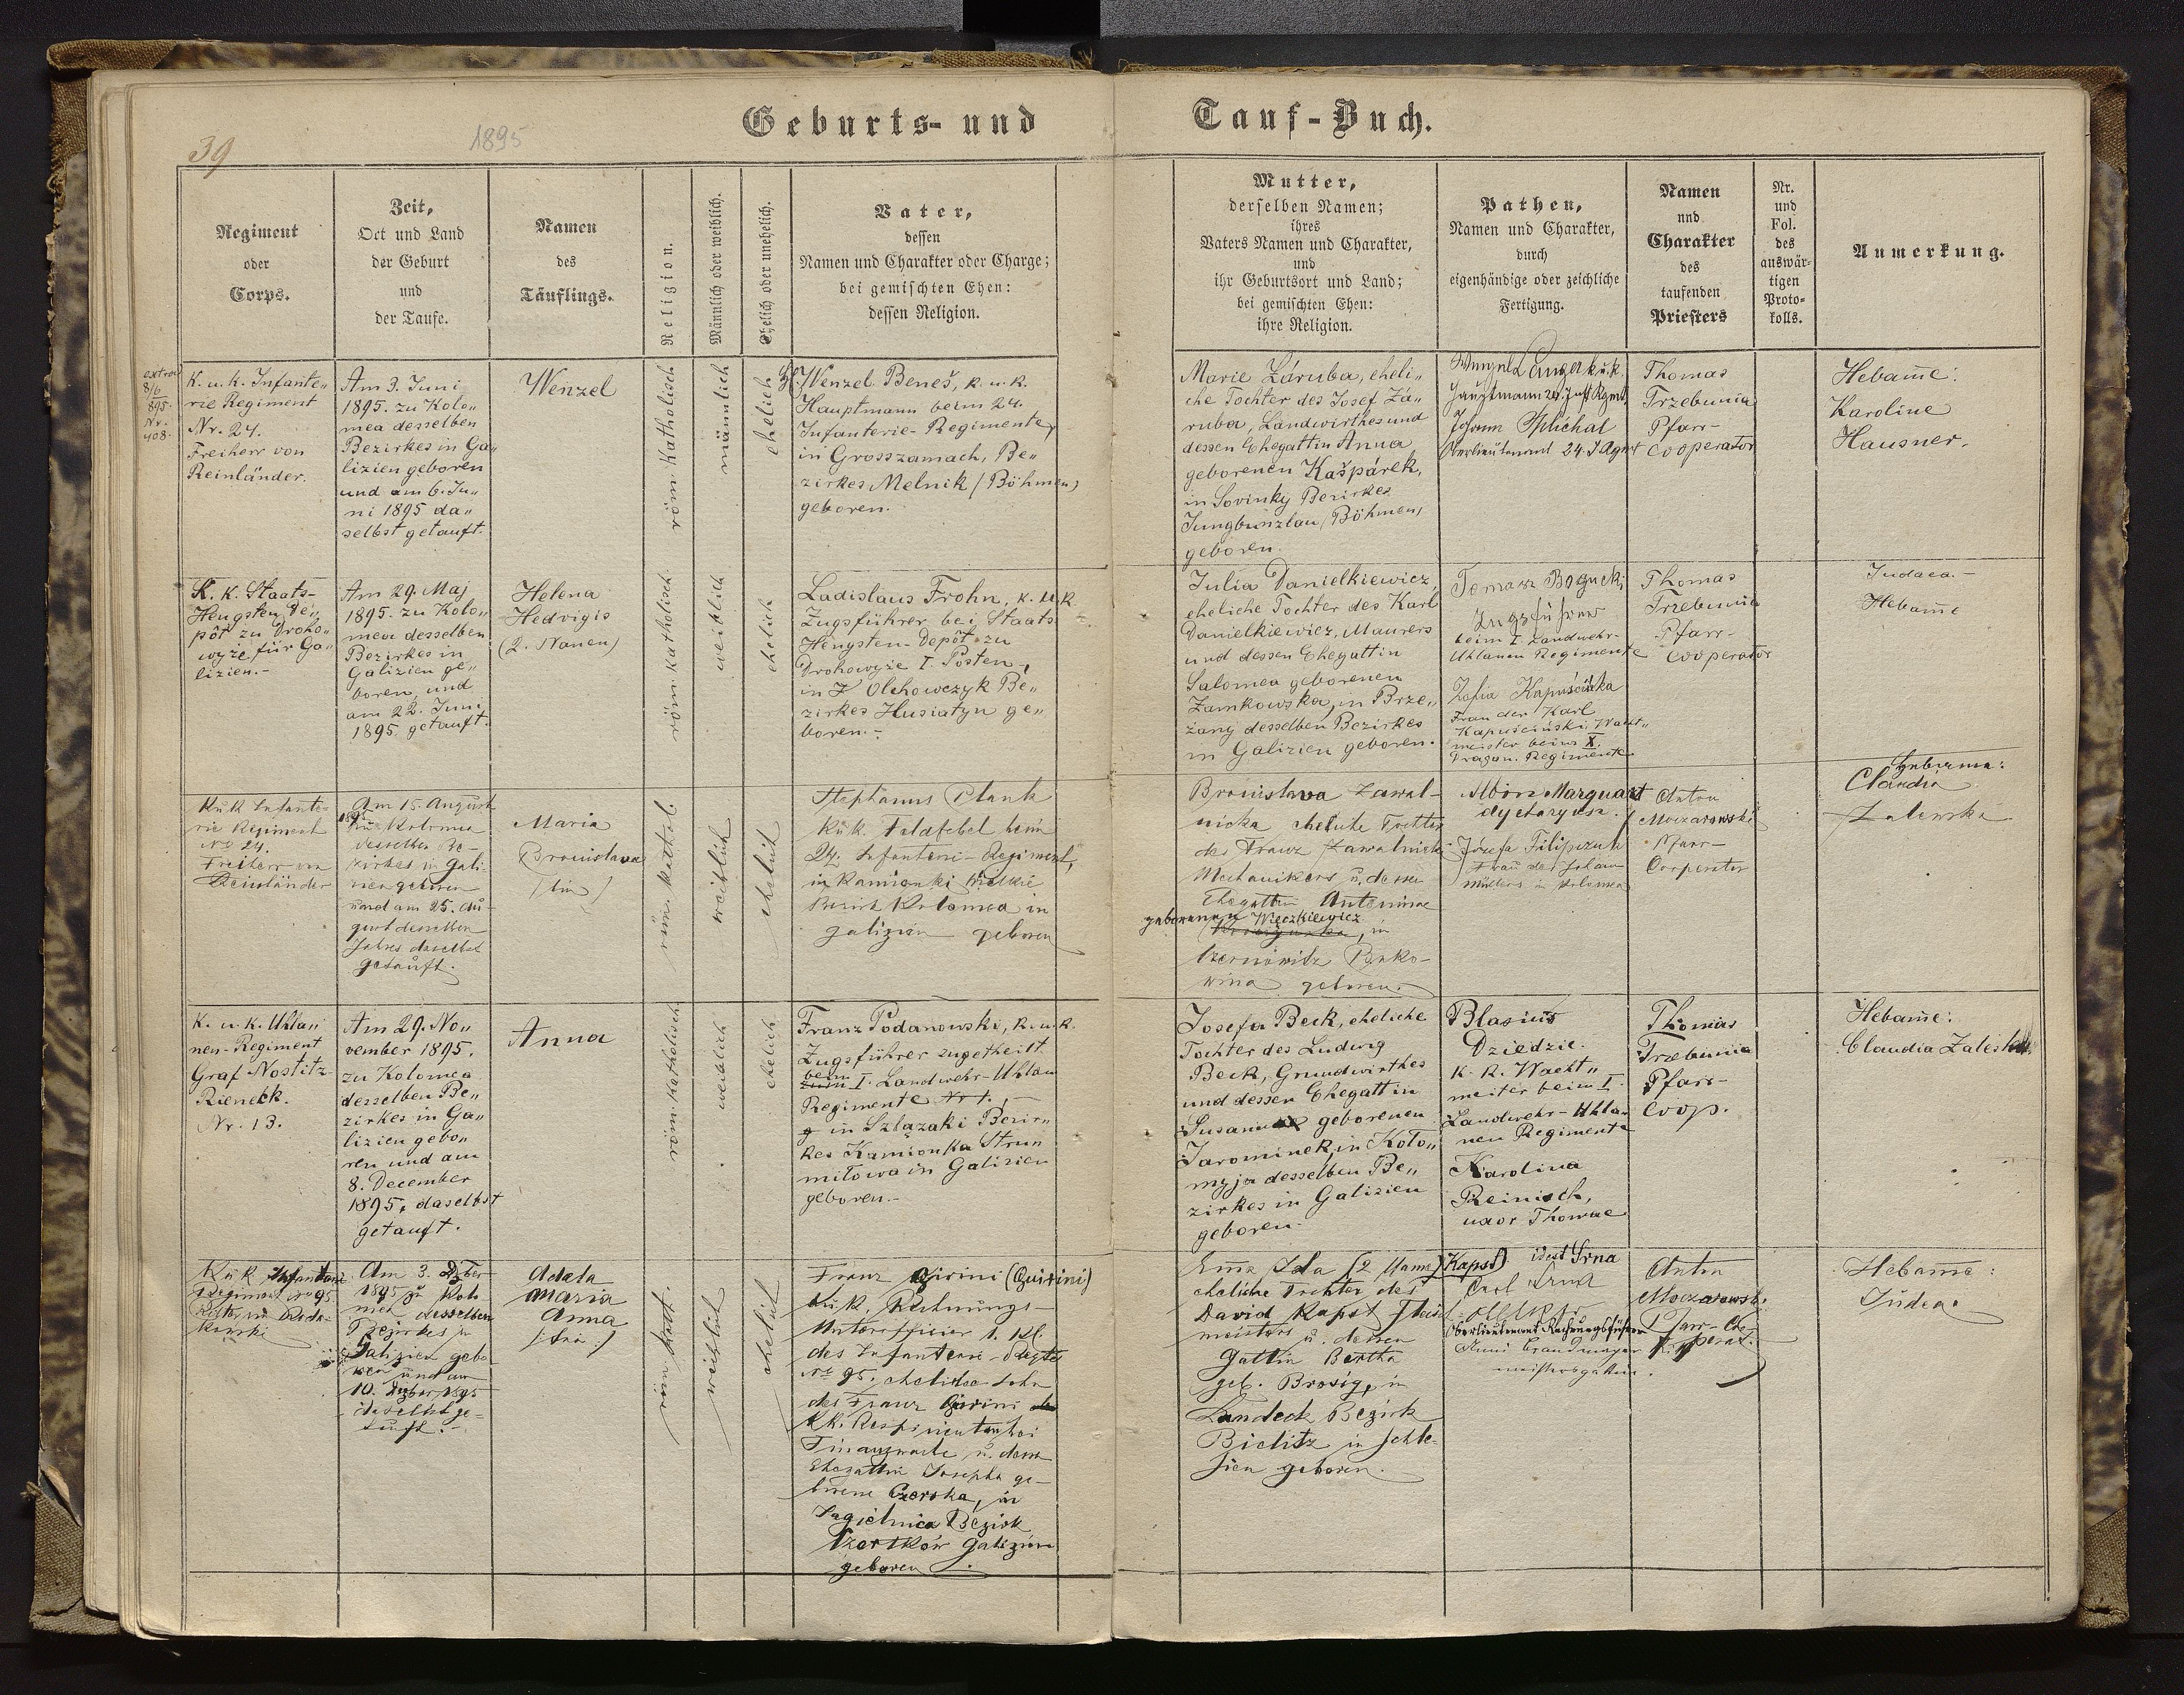 39
1895
Geburts- und Tauf-Buch.
Regiment
oder
Corps.
Zeit,
Oct und Land
der Geburt
und
der Taufe.
Namen
des
Täuflings.
Religion.
Männlich oder weiblich.
Ehelich oder unehelich.
Vater,
dessen
Namen und Charakter oder Charge;
bei gemischten Ehen:
dessen Religion.
Mutter,
derselben Namen;
ihres
Vaters Namen und Charakter,
und
ihr Geburtsort und Land;
bei gemischten Ehen:
ihre Religion.
Pathen,
Namen und Charakter,
durch
eigenhändige oder zeichliche
Fertigung.
Namen
und
Charakter
des
taufenden
Priesters
Nr.
und
Fol.
des
auswär-
tigen
Proto-
kolls.
Anmerkung.
8/6
895.
Nr.
408.
K. u. k. Infante„
rie Regiment
Nr. 24.
Freiherr von
Reinländer.
Am 3. Juni
1895. zu Kolo„
mea desselben
Bezirkes in Ga„
lizien geboren
und am 6. Ju„
ni 1895 da„
selbst getauft.
Wenzel
röm katholisch
männlich
ehelich
Wenzel Beneš, k. u. k.
Hauptmann beim 24.
Infanterie-Regimente,
in Grosszamach, Be„
zirkes Melnik (Böhmen)
geboren.
Marie Záruba, eheli„
che Tochter des Josef Zá„
ruba, Landwirthes und
dessen Ehegattin Anna
geborenen Kašpárek,
in Sovinky Bezirkes
Jungbunzlau (Böhmen)
geboren.
Hauptmann 24. Inft Rgmt.
Johann Splichal
Oberlieutenant 24. I Rgmt
Thomas
Trzebunia
Pfarr-
cooperator
Hebam̄e:
Karoline
Hausner.
K. k. Staats-
Hengsten De„
pôt zu Droho„
wyże für Ga„
lizien.-
Am 29. Maj
1895. zu Kolo„
mea desselben
Bezirkes in
Galizien ge„
boren, und
am 22. Juni
1895. getauft.
Helena
Hedvigis
(2. Namen)
röm. katholisch
weiblich
ehelich
Ladislaus Frohn, k. u. k.
Zugsführer bei Staats
Hengsten-Depôt zu
Drohowyże I. Posten,
in Olchowczyk Be„
zirkes Husiatyn ge„
boren.-
Julia Danielkiewicz,
eheliche Tochter des Karl
Danielkiewicz, Maurers
und dessen Ehegattin
Salomea geborenen
Zamkowska, in Brze„
żany desselben Bezirkes
in Galizien geboren.
Tomasz Bogucki
Zugsführer
beim I. Landwehr-
Uhlanen Regimente
Zofia Kapuścińska
Frau der Karl
Kapuściński Wacht„
meister beim X.
Dragon. Regimente
Thomas
Trzebunia
Pfarr-
cooperator
Judaea.-
Hebam̄e
KuK Infante-
rie Regiment
No 24.
Freiherr von
Reinländer
Am 15. August
1895 zu Kolomea
desselben Be-
zirkes in Gali-
zien geboren
und am 25. Au-
gust desselben
Jahres daselbst
getauft.
Maria
Bronislava
röm. kathol
weiblich
ehelich
Stephanus Plank
KuK. Feldfebel beim
24. Infanterie-Regiment,
in Kamionki wielkie
Bezirk Kolomea in
Galizien geboren
Bronislava Zawal-
nicka eheliche Tochter
des Franz Zawalnicki
Mechanikers u. dessen
Ehegattin Antonina
geborenen Wieczkiewicz
, in
Czernowitz Buko-
wina geboren.
Albin Marquart
dyetaryusz.
Józefa Filipczuk
Frau des Johann
Müllers in Kolomea
Anton
Moczarowski
Pfarr-
Cooperator
Hebamme:
Claudia
Zalewska
K. u. K. Uhla„
nen-Regiment
Graf Nostitz-
Rienek.
Nr. 13.
Am 29. No„
vember 1895.
zu Kolomea
desselben Be„
zirkes in Ga„
lizien gebo„
ren und am
8. December
1895, daselbst
getauft.
Anna
röm. katholisch
weiblich
ehelich
Franz Podanowski, k. u. k.
Zugsführer zugetheilt
beim I. Landwehr-Uhlan
Regimente Nr 1.,
in Szlązaki Bezir„
kes Kamionka Strum
miłowa in Galizien
geboren.-
Josefa Beck, eheliche
Tochter des Ludwig
Beck, Grundwirthes
und dessen Ehegattin
Susanna geborenen
Jarominek, in Koło„
myja desselben Be„
zirkes in Galizien
geboren.
Blasius
Dziedzic.
K. k. Wacht„
meiter beim I.
Landwehr-Uhla„
nen Regimente
Karolina
Reinisch,
uxor Thomae
Thomas
Trzebunia
Pfarr-
coop.
Hebam̄e:
Claudia Zaleska
KuK Infanterie
Regiment No 95.
Am 3. Dzber-
1895 zu Kolo
mea desselben
Bezirkes in
Galizien gebo-
ren und am
10. Dezber 1895
daselbst ge-
tauft.-
Adela
Maria
Anna
röm kath.
weiblich
ehelich
Franz Qirini (Quirini)
kuk. Rechnungs-
Unterofficier 1. Kl.
des Infanterie-Regts
No 95. ehelicher Sohn
des Franz Qirini
k.k. Respicienten bei
Finanzwache, u. dessen
Ehegattin Josepha ge-
borene Czerska, in
Jagielnica Bezirk
Czortków Galizien
geboren.
Emma Ida (2 Namen) (Kapst)
eheliche Tochter des
David Kapst
meisters u. dessen
Gattin Bertha
geb. Brosig, in
Landeck Bezirk
Bielitz in Schle-
sien geboren.
idest Srna
Carl Srna
Oberlieutenant Rechnungsführer
Anton
Moczarowski
Pfarr-Co-
perat.
Hebam̄e:
Judea.